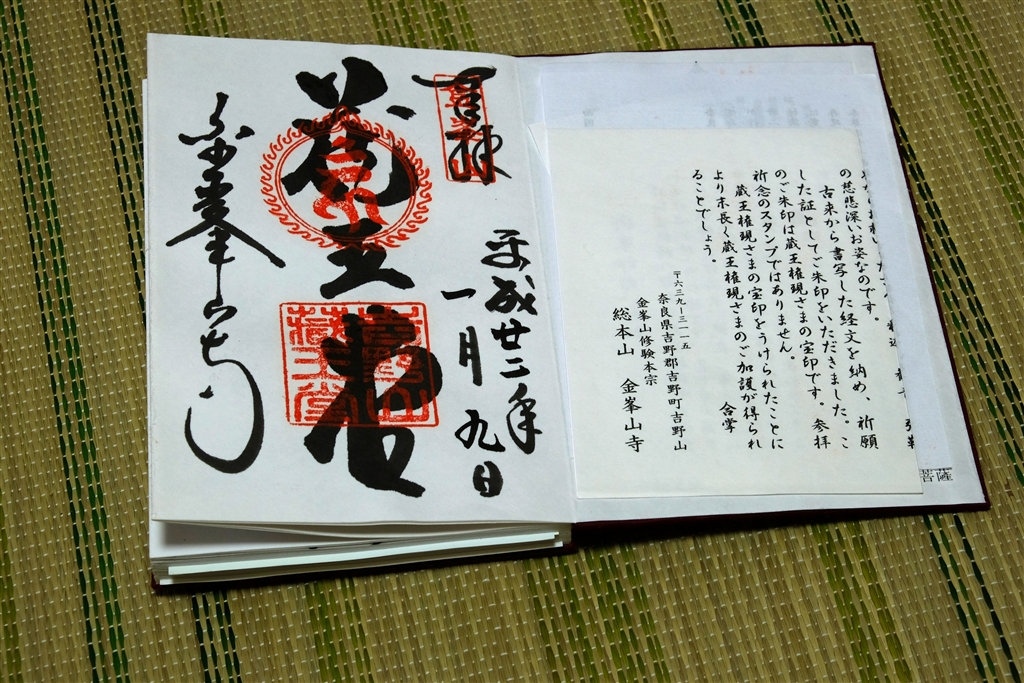 の慈悲深いお姿なのです。
古来から書写した経文を納め、祈願
した証としてご朱印をいただきました。こ
のご朱印は蔵王権現さまの宝印です。参拝
祈念のスタンプではありません。
蔵王権現さまの宝印をうけられたことに
より末長く蔵王権現さまのご加護が得られ
ることでしょう。
合掌
〒六三九ー三一一五
奈良県吉野郡吉野町吉野山
金峯山修験本宗
総本山 金峯山寺
菩薩
奉拝
平成廿二年
一月九日
蔵王堂
金峯山寺